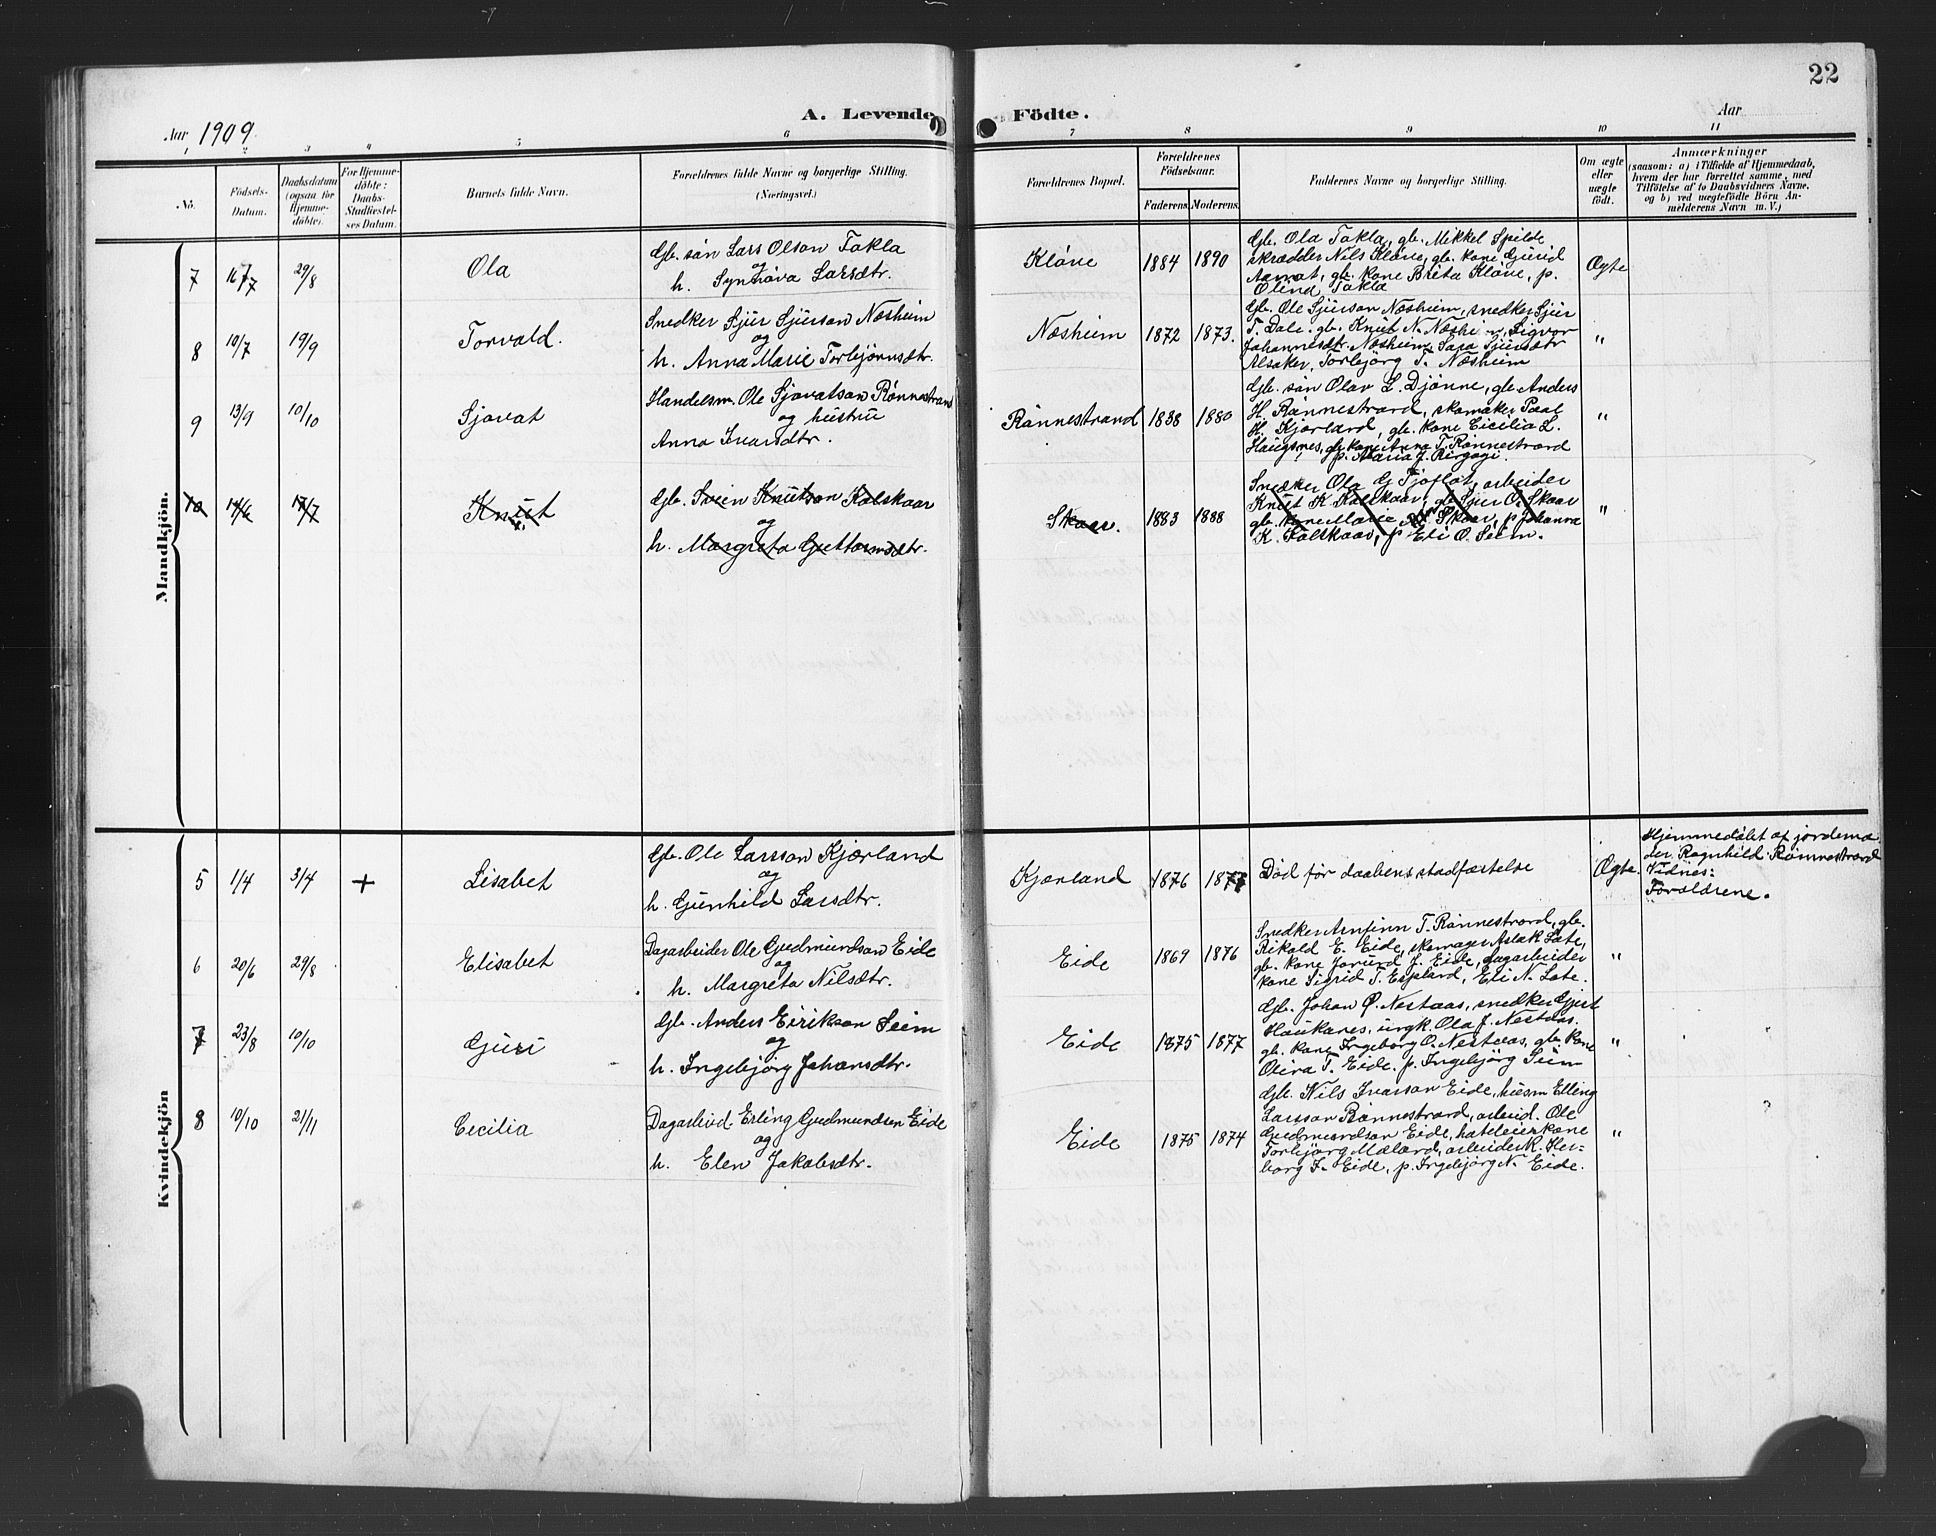 22
A. Levende Födte.
Aar 1909.
Aar
1 2 3 4 5 6 7 8 9 10 11
No.
Födsels-
Datum.
Daabsdatum
(ogsaa for
Hjemme-
döbte).
For Hjemme-
döbte:
Daabs-
Stadfæstel-
ses Datum.
Barnets fulde Navn.
Forældrenes fulde Navne og borgerlige Stilling.
(Næringsvei.)
Forældrenes Bopæl.
Forældrenes
Födselsaar.
Faderens. Moderens.
Faddernes Navne og borgerlige Stilling.
Om ægte
eller
uægte
födt.
Anmærkninger
(saasom: a) i Tilfælde af Hjemmedaab,
hvem der har forrettet samme, med
Tilföielse af to Daabsvidners Navne,
og b) ved uægtefödte Börn An-
melderens Navn m. V.)
Mandkjön.
7 16/7 29/8 Ola
Gb. søn Lars Olson Takla
og
h. Synnøva Larsdtr.
Kløve 1884 1890
Gb. Ola Takla, gb. Mikkel Spilde,
skrædder Nils Kløve, gb. kone Gjurid
Aamot, gb. kone Brita Kløve, p.
Olina Takla
Ægte
8 10/7 19/9 Torvald.
Snedker Sjur Sjurson Næsheim
og
h. Anna Marie Torbjørnsdtr.
Næsheim 1872 1873.
Gb. Ole Sjurson Næsheim, snedker Sjur
T. Dale, gb. Knut N. Næsheim, Sigvor
Johannesdtr. Næsheim, Sara Sjursdtr
Alsaker, Torbjörg T. Næsheim
"
9 13/9 10/10 Sjovat
Handelsm. Ole Sjovatson Rønnestrand
og hustru
Anna Ivarsdtr.
Rønnestrand 1838 1880
Gb. søn Olav L. Djønne, gb. Anders
H. Rønnestrand, skomaker Paal
H. Kjærland, gb. kone Cicilia L.
Haugsnes, gb. kone Anna T. Rønnestrand
p. Maria J.
"
10 14/6 17/7 Knut
Gb. Svein Knutson Kolskaar
og
h. Margreta Guttormsdtr.
Skaar. 1883 1888
Snedker Ola G. Tjoflot, arbeider
Knut K. Kolskaar, gb. Sjur O. Skaar
gb. kone Marie Skaar, p. Johanna
K. Kolskaar, p. Eli O. Seim.
"
Kvindekjön
5 1/4 3/4 + Lisabet
Gb. Ole Larsson Kjærland
og
h. Gunhild Larsdtr.
Kjærland 1876 1877
Død før daabens stadfæstelse
Ægte.
Hjemmedøbt af jordemo
der Ragnhild Rønnestrand
Vidnes:
Forældrene.
6 20/6 29/8 Elisabet
Dagarbeider Ole Gudmundson Eide
og
h. Margreta Nilsdtr.
Eide 1869 1876
Snedker Arnfinn T. Rønnestrand, gb.
Rikold E. Eide, skomager Aslak Låte,
gb. kone Jorund J. Eide, dagarbeider
kone Sigrid T. Espeland, Eli N. Låte.
"
7 23/8 10/10 Gjuri
Gb. Anders Eirikson Seim
og
h. Ingebjörg Johansdtr.
Eide 1875 1877
Gb. Johan O. Nestaas, snedker Gjert
Haukanes, ungk. Ola J. Nestaas.
gb. kone Ingeborg O. Nestaas, gb. kone
Olina T. Eide, p. Ingebjörg Seim
"
8 10/10 21/11 Cecilia
Dagarbeid. Erling Gudmundsen Eide
og
h. Elen Jakobsdtr.
Eide 1875 1874
Gb. Nils Ivarson Eide, husm Elling
Larsson Rønnestrand, arbeid. Ole
Gudmundson Eide, hoteleierkone
Torbjörg Mæland, arbeiderk. Her=
borg J. Eide, p. Ingebjörg N. Eide.
"